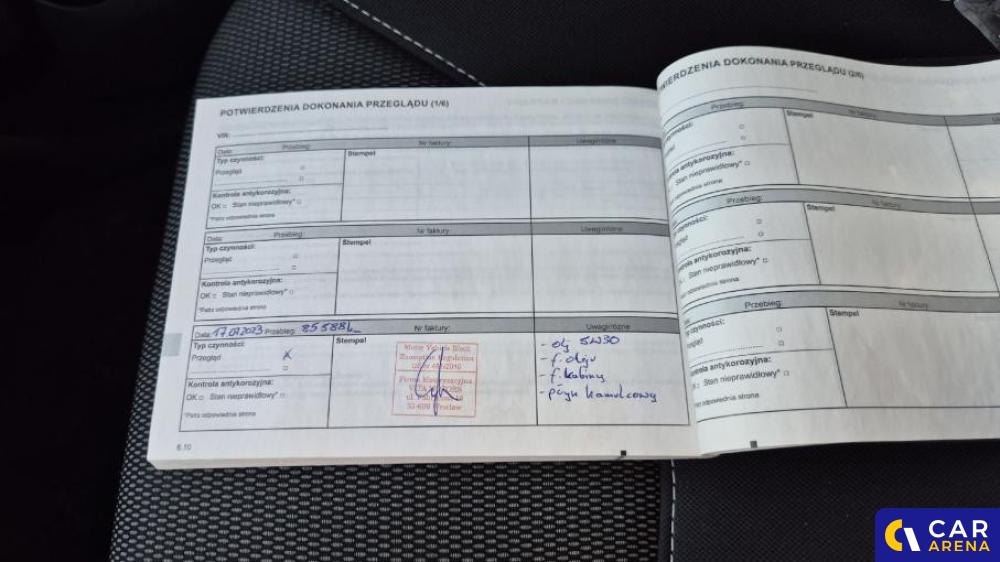 POTWIERDZENIA DOKONANIA PRZEGLĄDU (1/6)
VIN:
Data: Przebieg: Nr faktury: Uwagi/różne
Typ czynności: Stempel
Przegląd
Kontrola antykorozyjna:
OK Stan nieprawidłowy*
*Patrz odpowiednia strona
Data: Przebieg: Nr faktury: Uwagi/różne
Typ czynności: Stempel
Przegląd
Kontrola antykorozyjna:
OK Stan nieprawidłowy*
*Patrz odpowiednia strona
Data: 17.07.2023 Przebieg: 85588 Nr faktury: Uwagi/różne
Typ czynności: Stempel
Przegląd X
Kontrola antykorozyjna:
OK Stan nieprawidłowy*
*Patrz odpowiednia strona
Motor Vehicle Block
Exemption Regulation
Firma Motoryzacyjna
Wrocław
- olej 5W30
- f. oleju
- f. kabiny
- płyn hamulcowy
6.10
DOKONANIA PRZEGLĄDU (2/6)
Przebieg:
Stempel
czynności:
antykorozyjna:
Stan nieprawidłowy*
strona
Przebieg: Nr faktury:
Stempel
czynności:
antykorozyjna:
Stan nieprawidłowy*
odpowiednia strona
Przebieg: Nr faktury
Stempel
czynności:
antykorozyjna:
Stan nieprawidłowy*
odpowiednia strona
CAR
ARENA